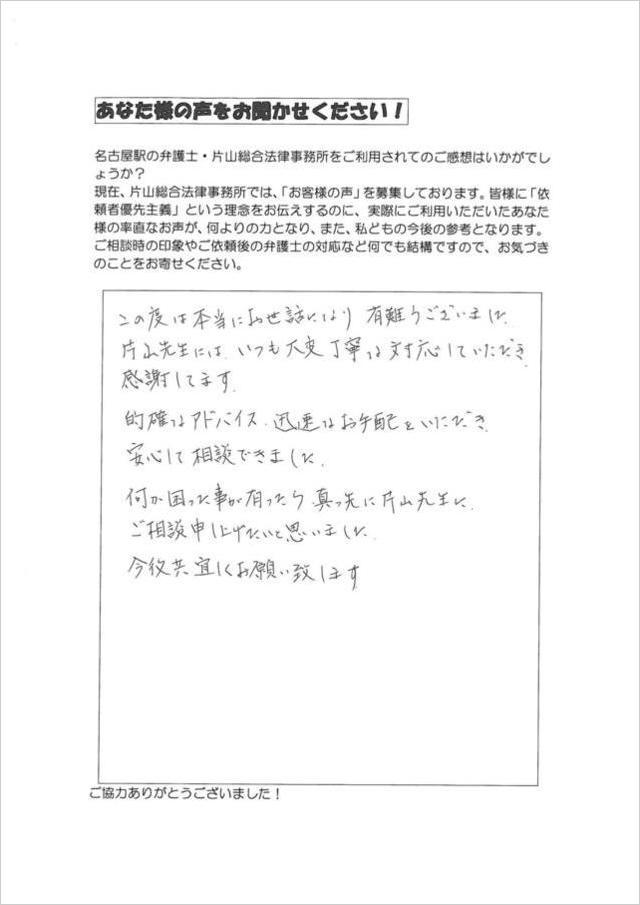 あなた様の声をお聞かせください！
名古屋駅の弁護士・片山総合法律事務所をご利用されてのご感想はいかがでし
ょうか？
現在、片山総合法律事務所では、「お客様の声」を募集しております。皆様に「依
頼者優先主義」という理念をお伝えするのに、実際にご利用いただいたあなた
様の率直なお声が、何よりの力となり、また、私どもの今後の参考となります。
ご相談時の印象やご依頼後の弁護士の対応など何でも結構ですので、お気づき
のことをお寄せください。
この度は本当にお世話になり 有難うございました.
片山先生には、いつも大変丁寧な対応していただき
感謝してます.
的確なアドバイス.迅速なお手配をいただき
安心して相談できました.
何か困った事が有ったら真っ先に片山先生に
ご相談申し上げたいと思いました.
今後共宜しくお願い致します
ご協力ありがとうございました！